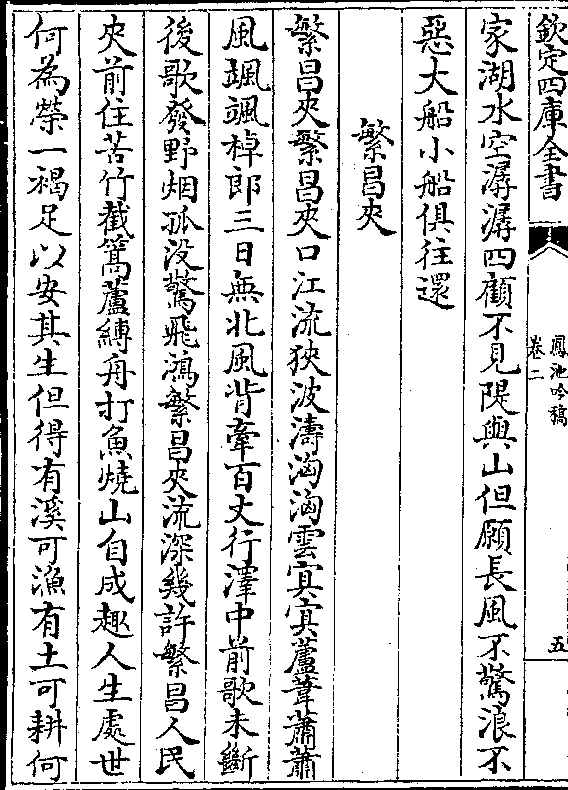 欽定四庫全書
鳳池吟稿
卷二
五
家湖水空潺潺四顧不見隄與山但願長風不驚浪不
惡大船小船俱往還
繁昌夾
繁昌夾繁昌夾口江流狹波濤洶洶雲㝠㝠蘆葦蕭蕭
風颯颯棹郎三日無北風背牽百丈行澤中前歌未斷
後歌發野烟孤没驚飛鴻繁昌夾流深幾許繁昌人民
夾前住苦竹截篙蘆縛舟打魚燒山自成趣人生處世
何為榮一褐足以安其生但得有溪可漁有土可耕何